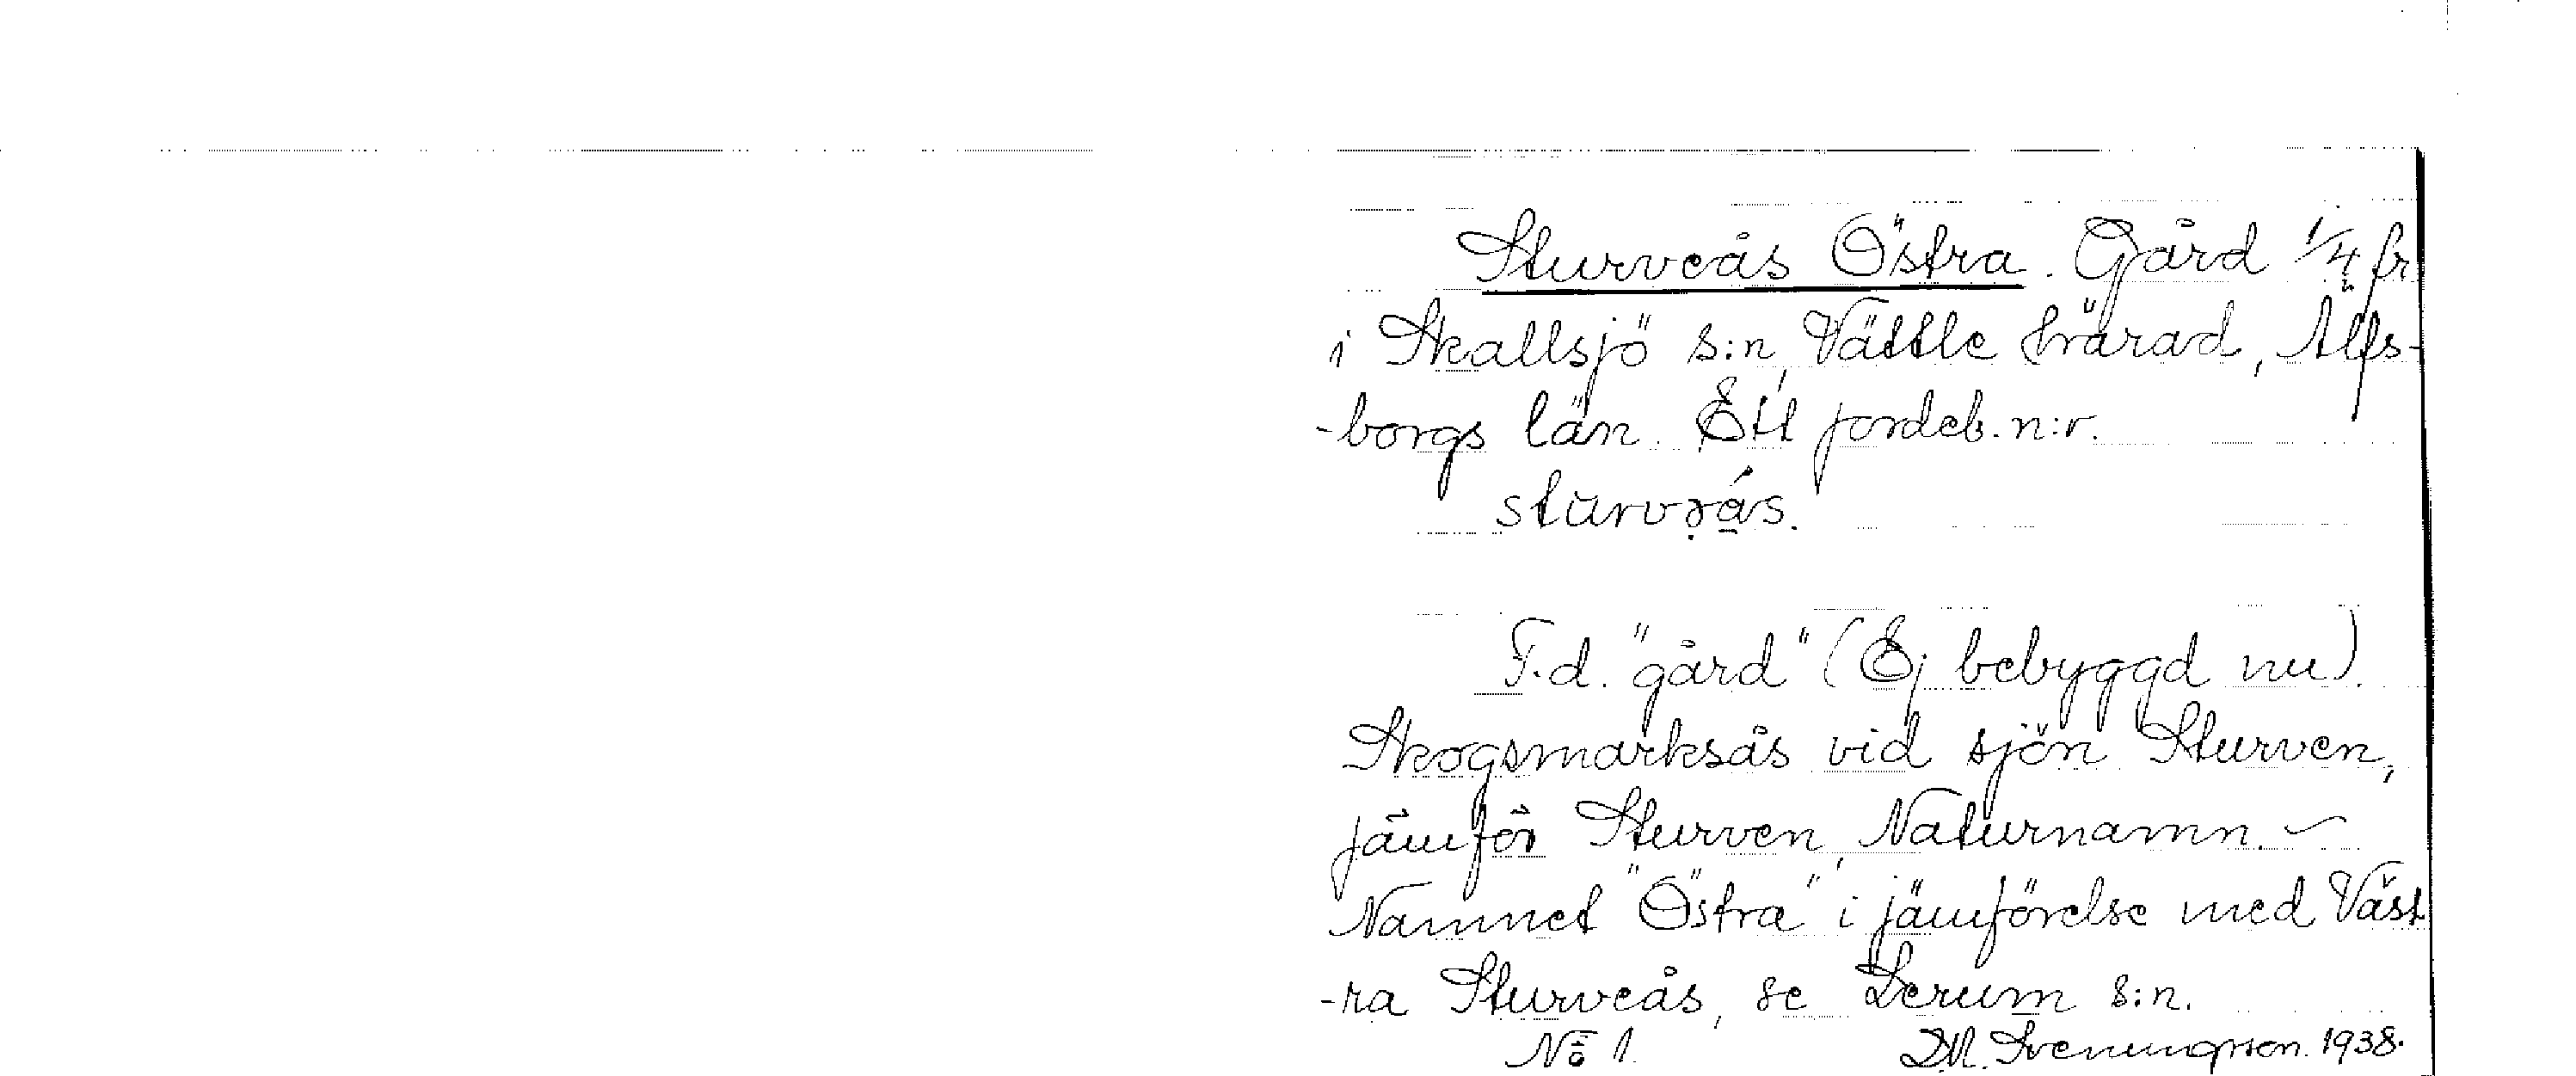 Sturveås Östra. Gård 1/4 fr
i Skallsjö s:n, Vättle härad, Älfs-
-borgs län. Ett jordeb. n:r.
stūrvǝás.
F.d. "gård" (Ej bebyggd nu).
Skogsmarksås vid sjön Sturven,
jämför Sturven, Naturnamn. –
Namnet "Östra" i jämförelse med Väst
-ra Sturveås, se Lerum s:n.
No 1. D.M. Sveningsson. 1938.